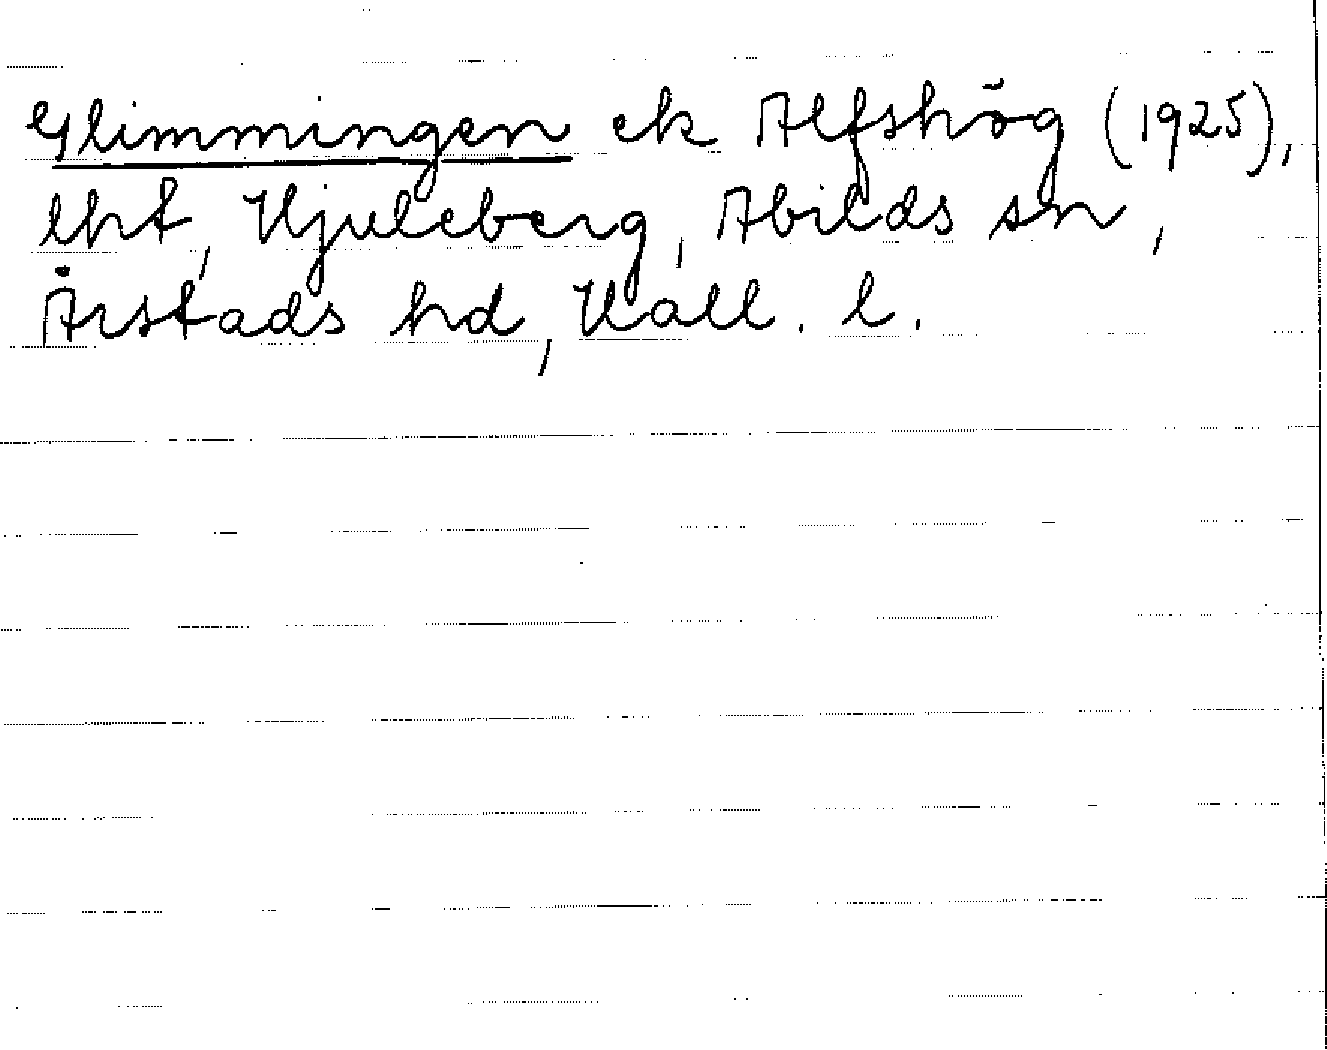 Glimmingen ek Alfshög (1925),
lht, Hjuleberg, Abilds sn,
Årstads hd, Hall. l.